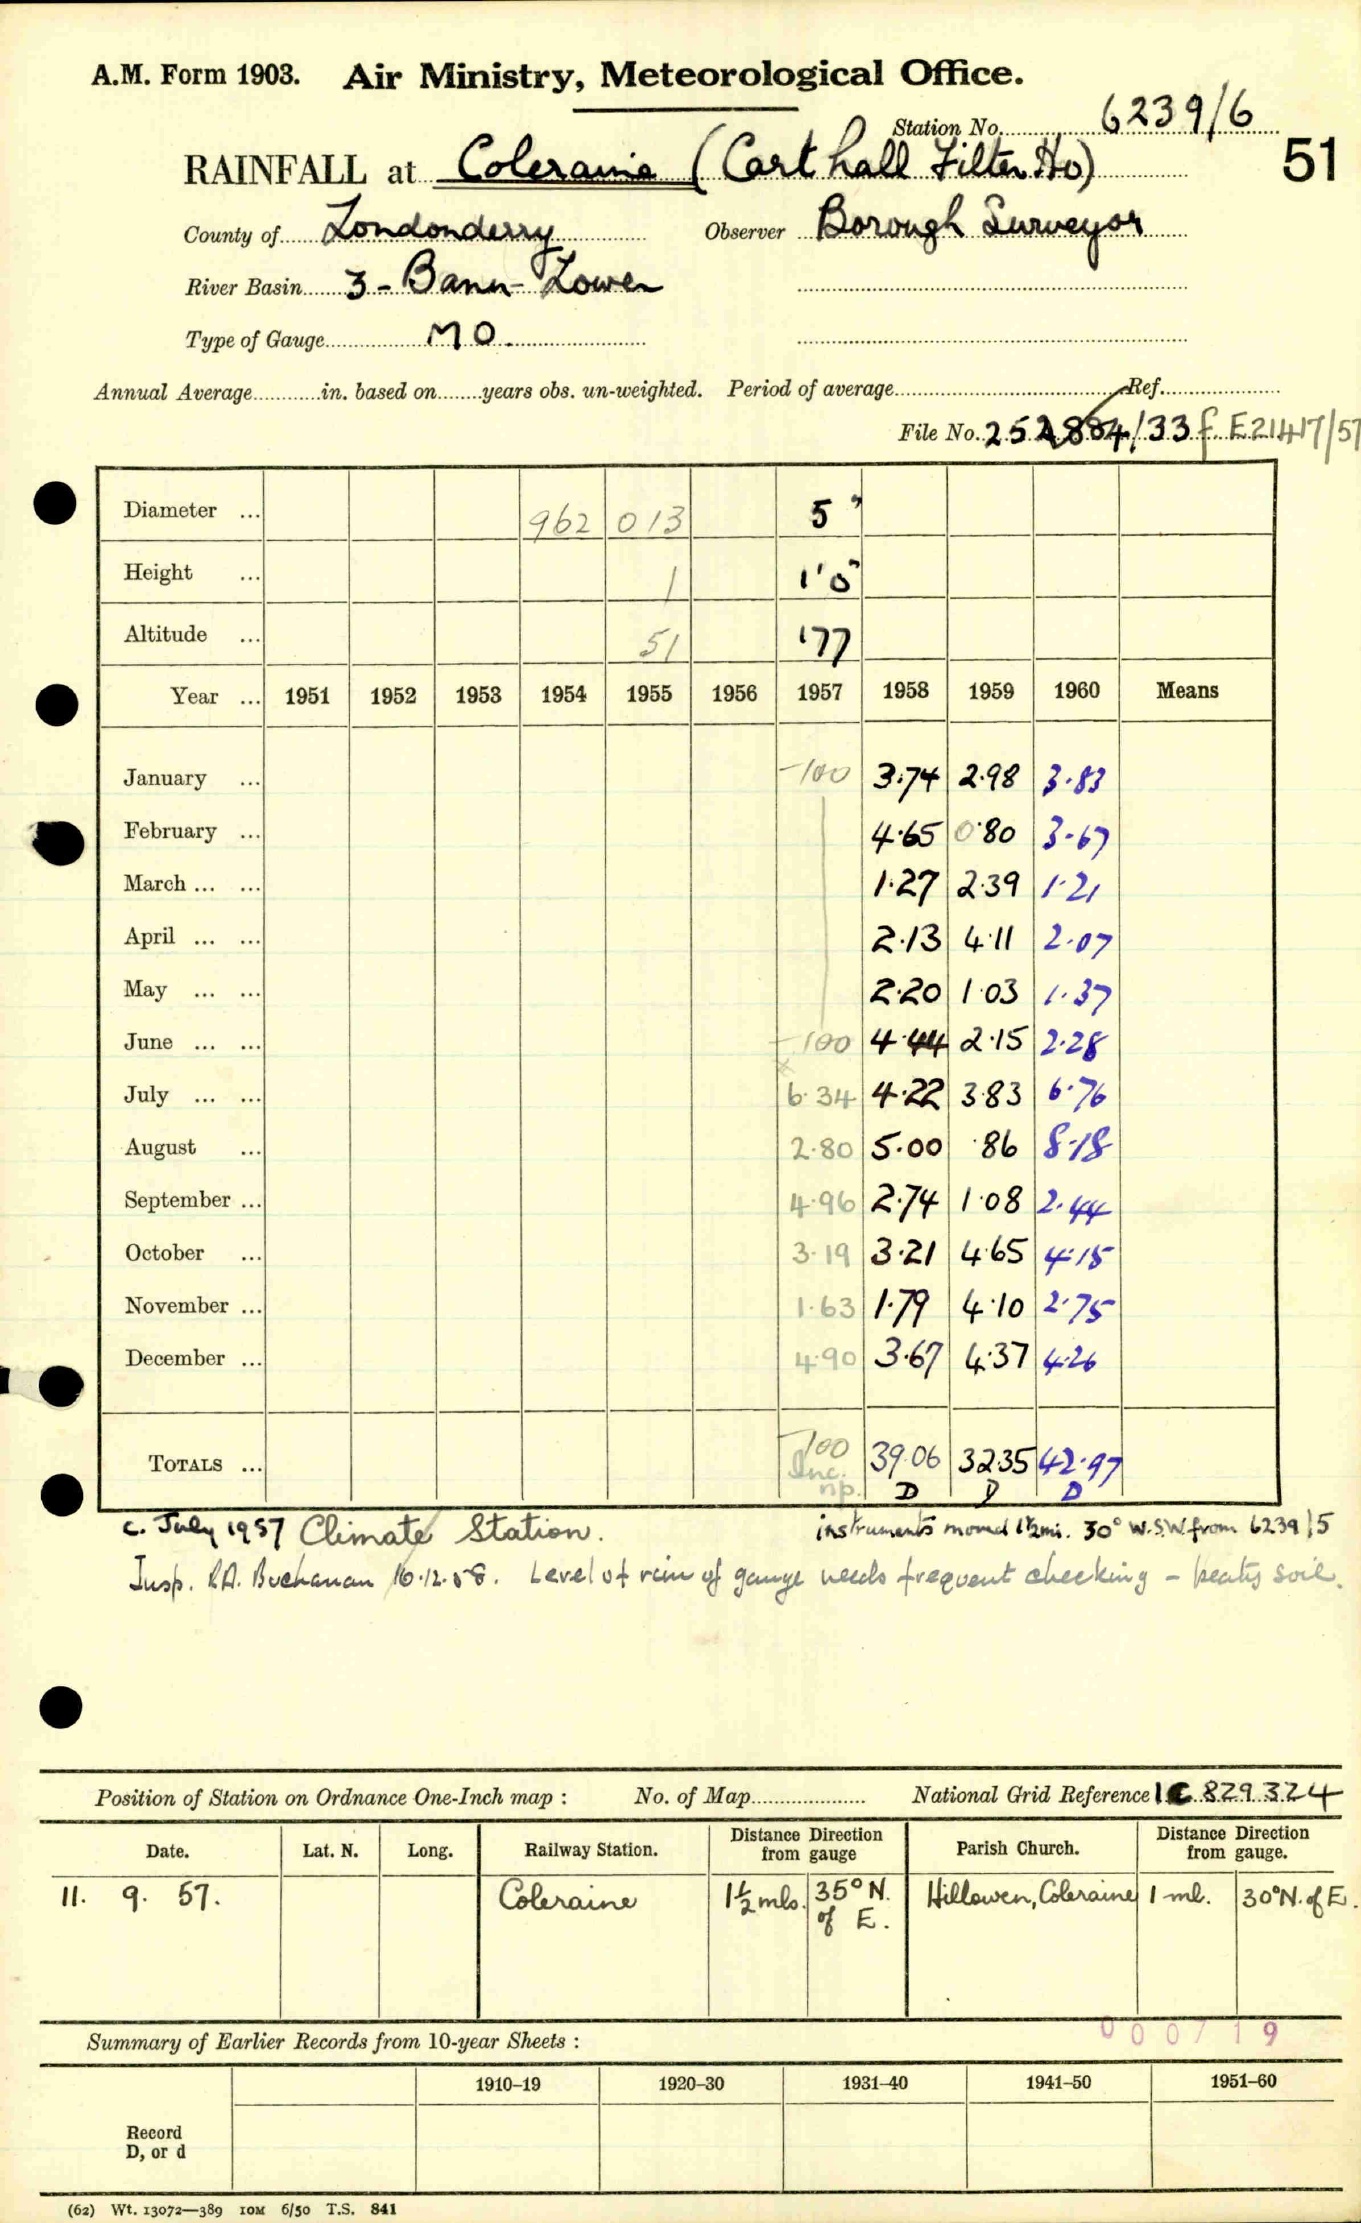 A.M. Form 1903. Air Ministry, Meteorological Office.
Station No. 6239/6
RAINFALL at Coleraine (Carthall Filter Ho) 51
County of Londonderry Observer Borough Surveyor
River Basin 3 - Bann - Lower
Type of Gauge M O.
Annual Average in. based on years obs. un-weighted. Period of average Ref.
File No. /33 f E21417/57
Diameter ... 962 013 5"
Height ... 1 1'0"
Altitude ... 51 '77
Year ... 1951 1952 1953 1954 1955 1956 1957 1958 1959 1960 Means
January ... -100 3.74 2.98 3.83
February ... 4.65 0.80 3.67
March ... ... 1.27 2.39 1.21
April ... ... 2.13 4.11 2.07
May ... ... 2.20 1.03 1.37
June ... ... -100 4.44 2.15 2.28
July ... ... 6.34 4.22 3.83 6.76
August ... 2.80 5.00 .86 8.18
September ... 4.96 2.74 1.08 2.44
October ... 3.19 3.21 4.65 4.15
November ... 1.63 1.79 4.10 2.75
December ... 4.90 3.67 4.37 4.26
TOTALS ... -100 39.06 32.35 42.97
Inc. np. D D D
c. July 1957 Climate Station. instruments moved 1½mi. 30° W.S.W. from 6239/5
Insp. R.A. Buchanan 16.12.58. Level of rim of gauge needs frequent checking - peaty soil.
Position of Station on Ordnance One-Inch map : No. of Map National Grid Reference 1C 829324
Date. Lat. N. Long. Railway Station. Distance from gauge Direction Parish Church. Distance from gauge. Direction
11. 9. 57. Coleraine 1½ mls. 35° N. of E. Coleraine 1 ml. 30° N. of E.
000719
Summary of Earlier Records from 10-year Sheets :
1910–19 1920–30 1931–40 1941–50 1951–60
Record
D, or d
(62) Wt. 13072—389 10M 6/50 T.S. 841